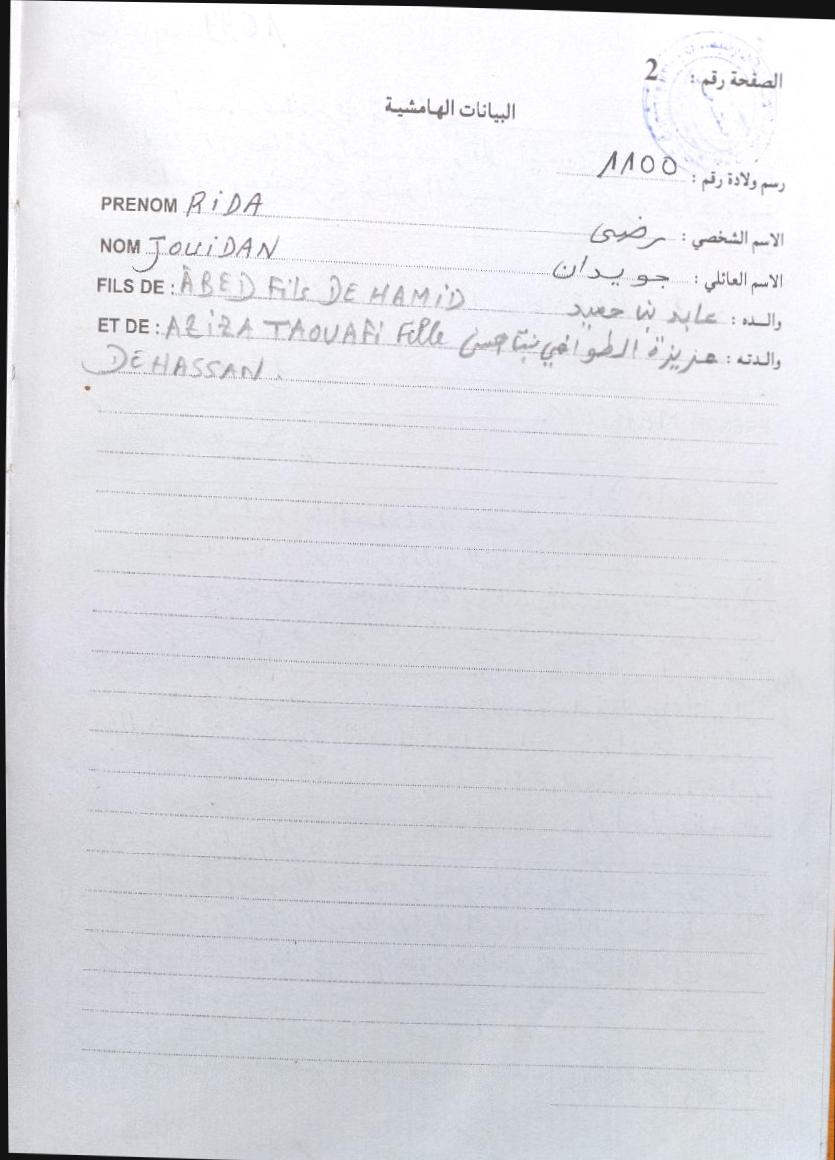 الصفحة رقم : 2
البيانات الهامشية
رسم ولادة رقم : 1100
PRENOM RiDA
الاسم الشخصي : رضى
NOM JOUiDAN
الاسم العائلي : جويدان
FILS DE : ÀBED Fils DE HAMiD
والـده : عابد بن حميد
ET DE : AZiZA TAOUAFi Fille
والدته : عزيزة الطوافي بنت حسن
DE HASSAN.